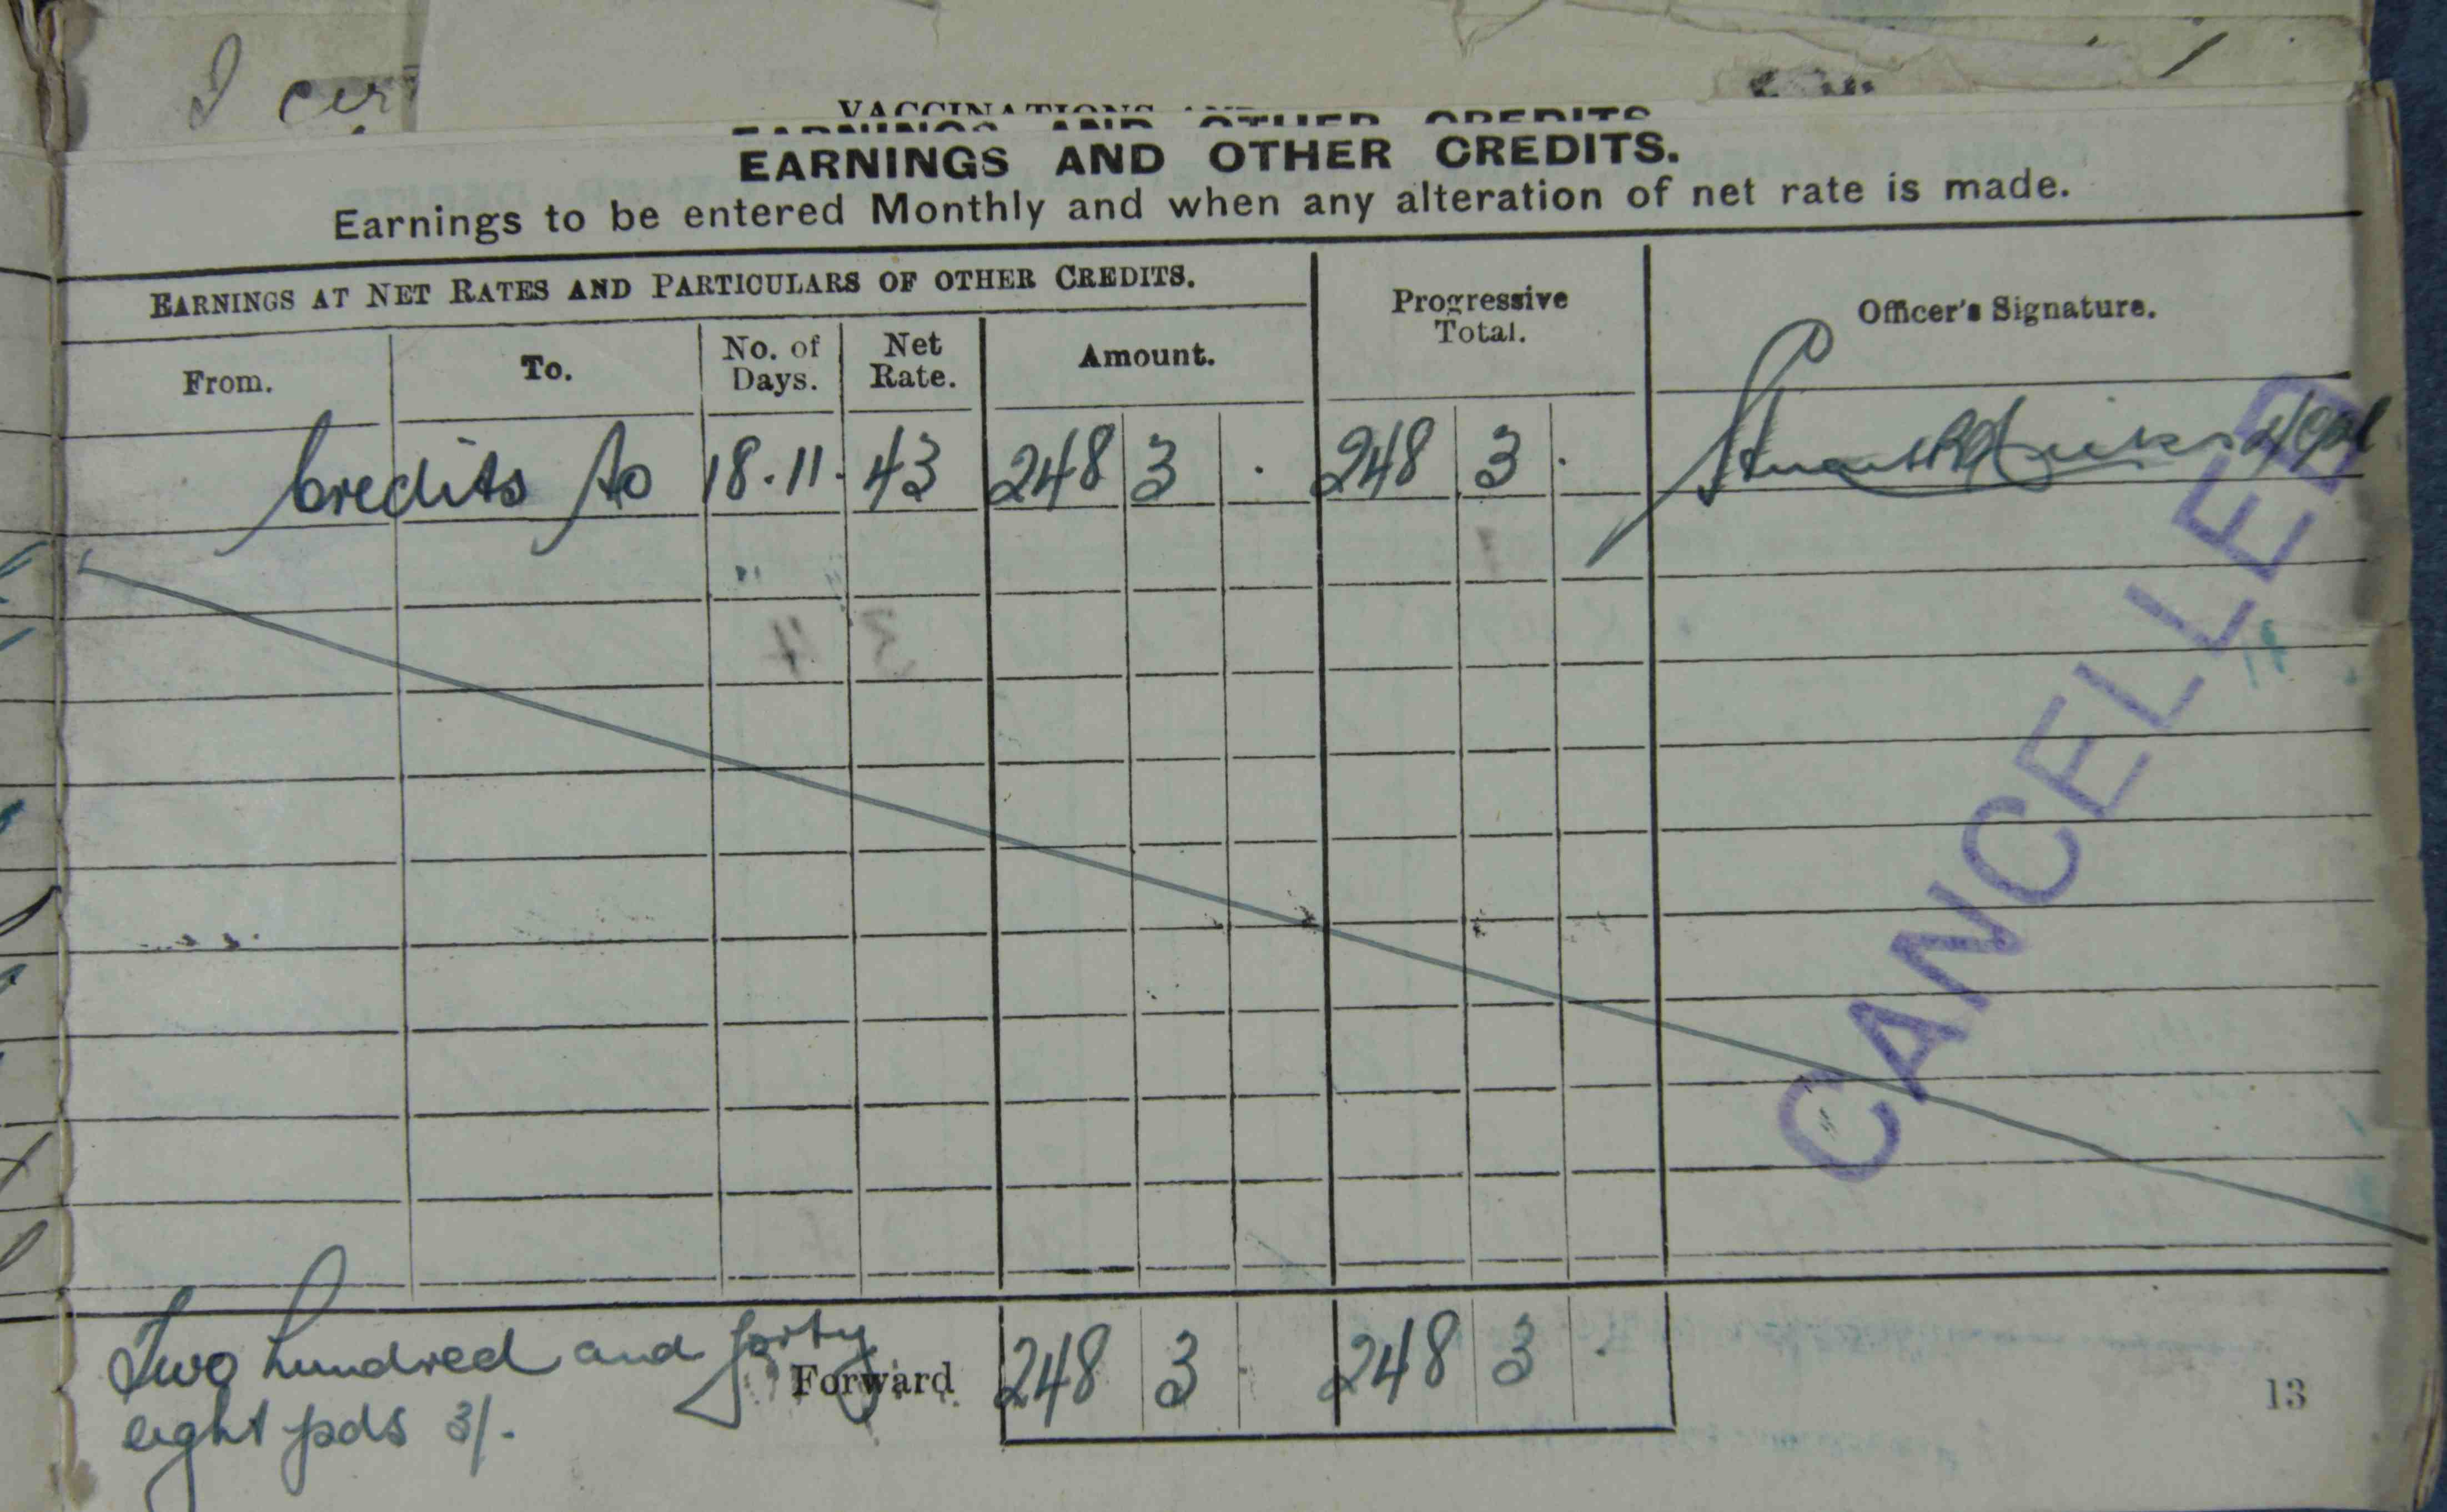 I cer
VACCINATIONS
EARNINGS AND OTHER CREDITS
EARNINGS AND OTHER CREDITS.
Earnings to be entered Monthly and when any alteration of net rate is made.
EARNINGS AT NET RATES AND PARTICULARS OF OTHER CREDITS.
Progressive Total.
Officer's Signature.
From. To. No. of Days. Net Rate. Amount.
Credits to 18.11.43 248 3 . 248 3 .
CANCELLED
Two hundred and forty
Forward 248 3 . 248 3 .
eight pds 3/-
13